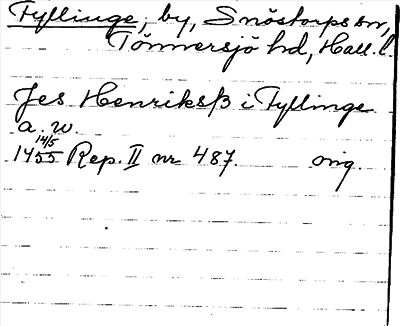 Fyllinge, by, Snöstorps sn,
Tönnersjö hd, Hall. l.
Jes Henrikssß i Fyllinge
a. w.
14/5
1455 Rep. II nr 487. orig.